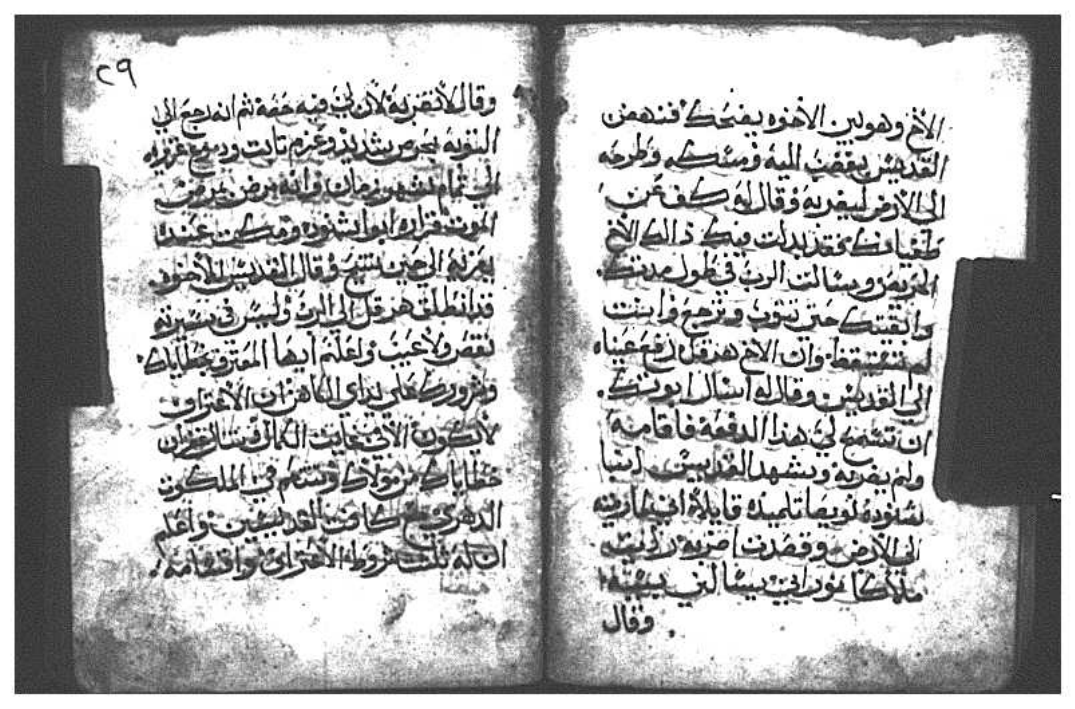 الاخ وهو بين الاخوه يضحك فنهض
القديس بغضب اليه ومسكه وطرحه
الى الارض ليضربه وقال له كف عن
طغيانك فقد بدلت فيك ذالك الاخ
وسالت الرب في طول مدتك
وابقيتك حتى تتوب وترجع وانت
لم تستيقظ وان الاخ هرقل رفع عيناه
الى القديس وقال له اسال ابوتك
ان تسمح لي هذا الدفعة فاقامه
ولم يضربه ويشهد القديس ابينا
لشنوده تلميذه قايلا اني
الى الارض وقصدت اضربه رايت
ملاكا نوراني يسالني بسببه
وقال
٢٩
وقال لا تضربه لان فيه خفة ثم انه رجع الى
التوبه بحرص شديد وعزم ثابت ودموع غزيره
الى تمام زمان وانه مرض بمرض
الموت فزاره ابوا شنوده ومكث عنده
يعزيه الى حين تنيح وقال القديس للاخوه
قد انطلق هرقل الى الرب وليس في سيرته
نقص ولا عيب واعلم ايها المعترف بخطاياك
على يداي الكاهن ان الاعتراف
لا يكون الا في غايت الكمال فتنال غفران
خطاياك من مولاك وتتنعم في الملكوت
الدهري مع كافت القديسين واعلم
ان له تلت شروط الاعتراف